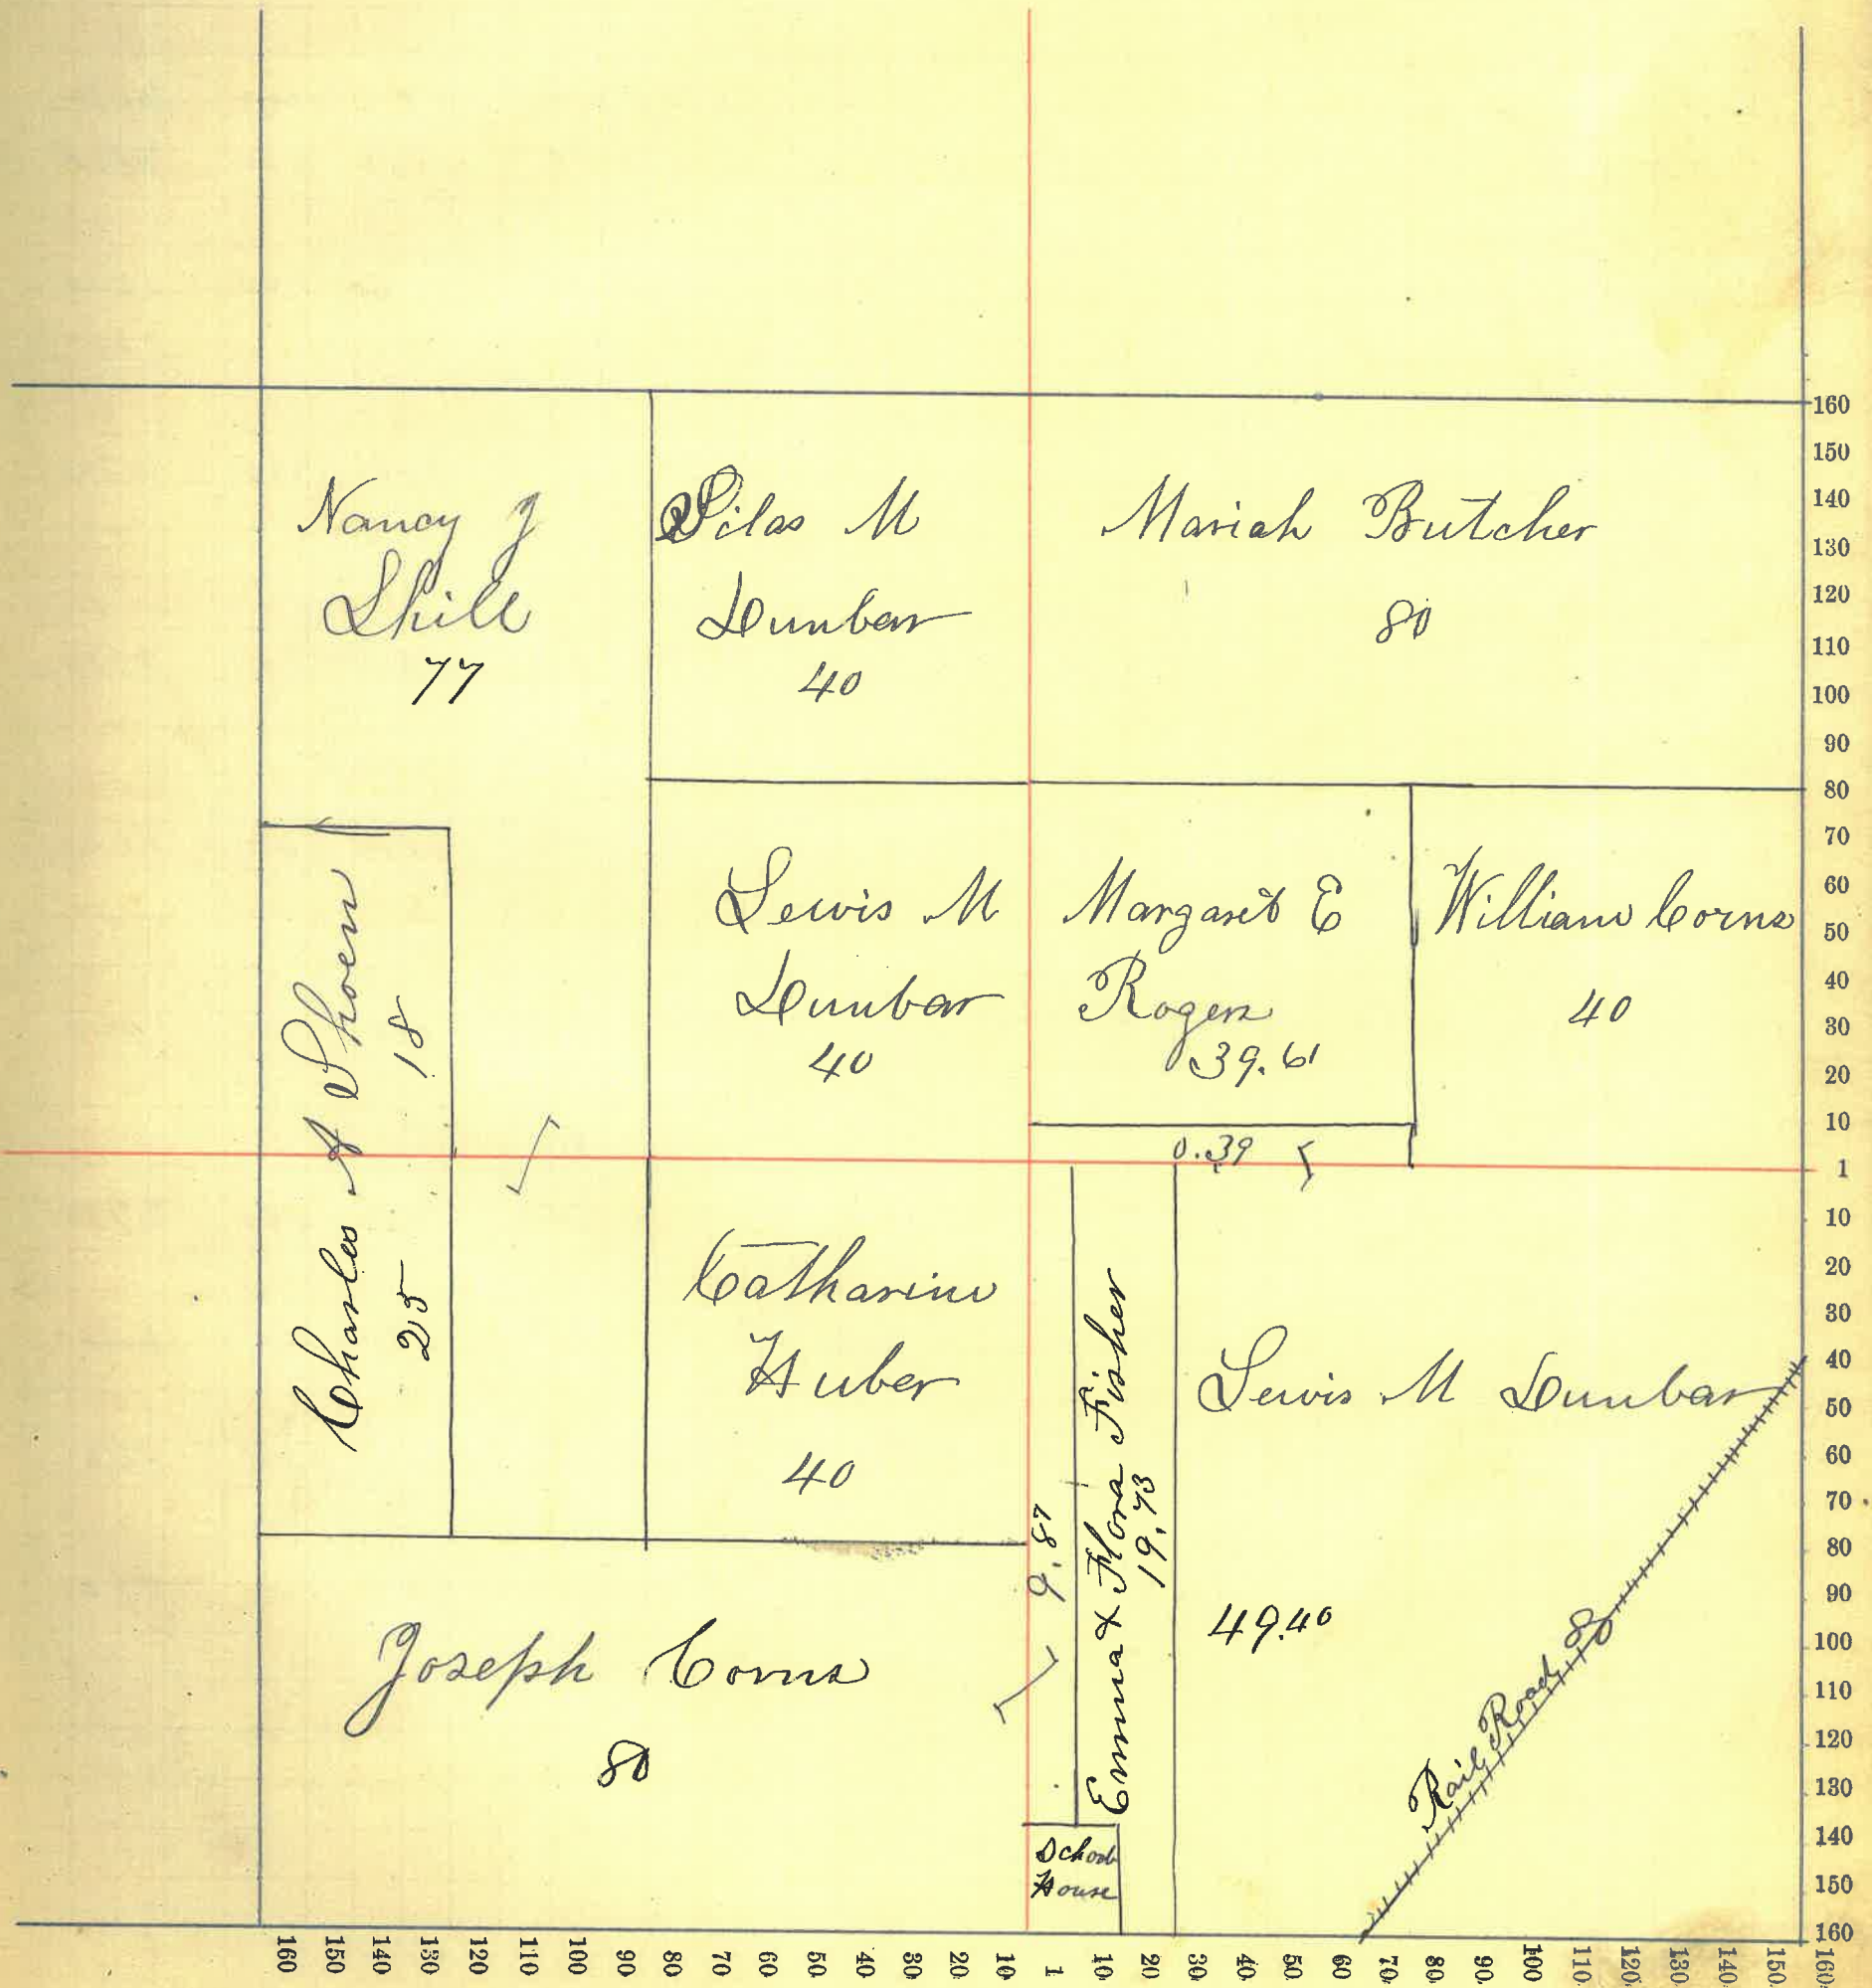 Nancy J
Shill
77
Silas M
Dunbar
40
Mariah Butcher
80
Charles A Shoen
18
25
Lewis M
Dunbar
40
Margaret E
Rogers
39.61
William Corns
40
0.39
Catharine
Huber
40
9.87
Emma & Flora Fisher
19.73
Lewis M Dunbar
49.40
Rail Road 80
Joseph Corns
80
School
House
160
150
140
130
120
110
100
90
80
70
60
50
40
30
20
10
1
10
20
30
40
50
60
70
80
90
100
110
120
130
140
150
160
160 150 140 130 120 110 100 90 80 70 60 50 40 30 20 10 1 10 20 30 40 50 60 70 80 90 100 110 120 130 140 150 160